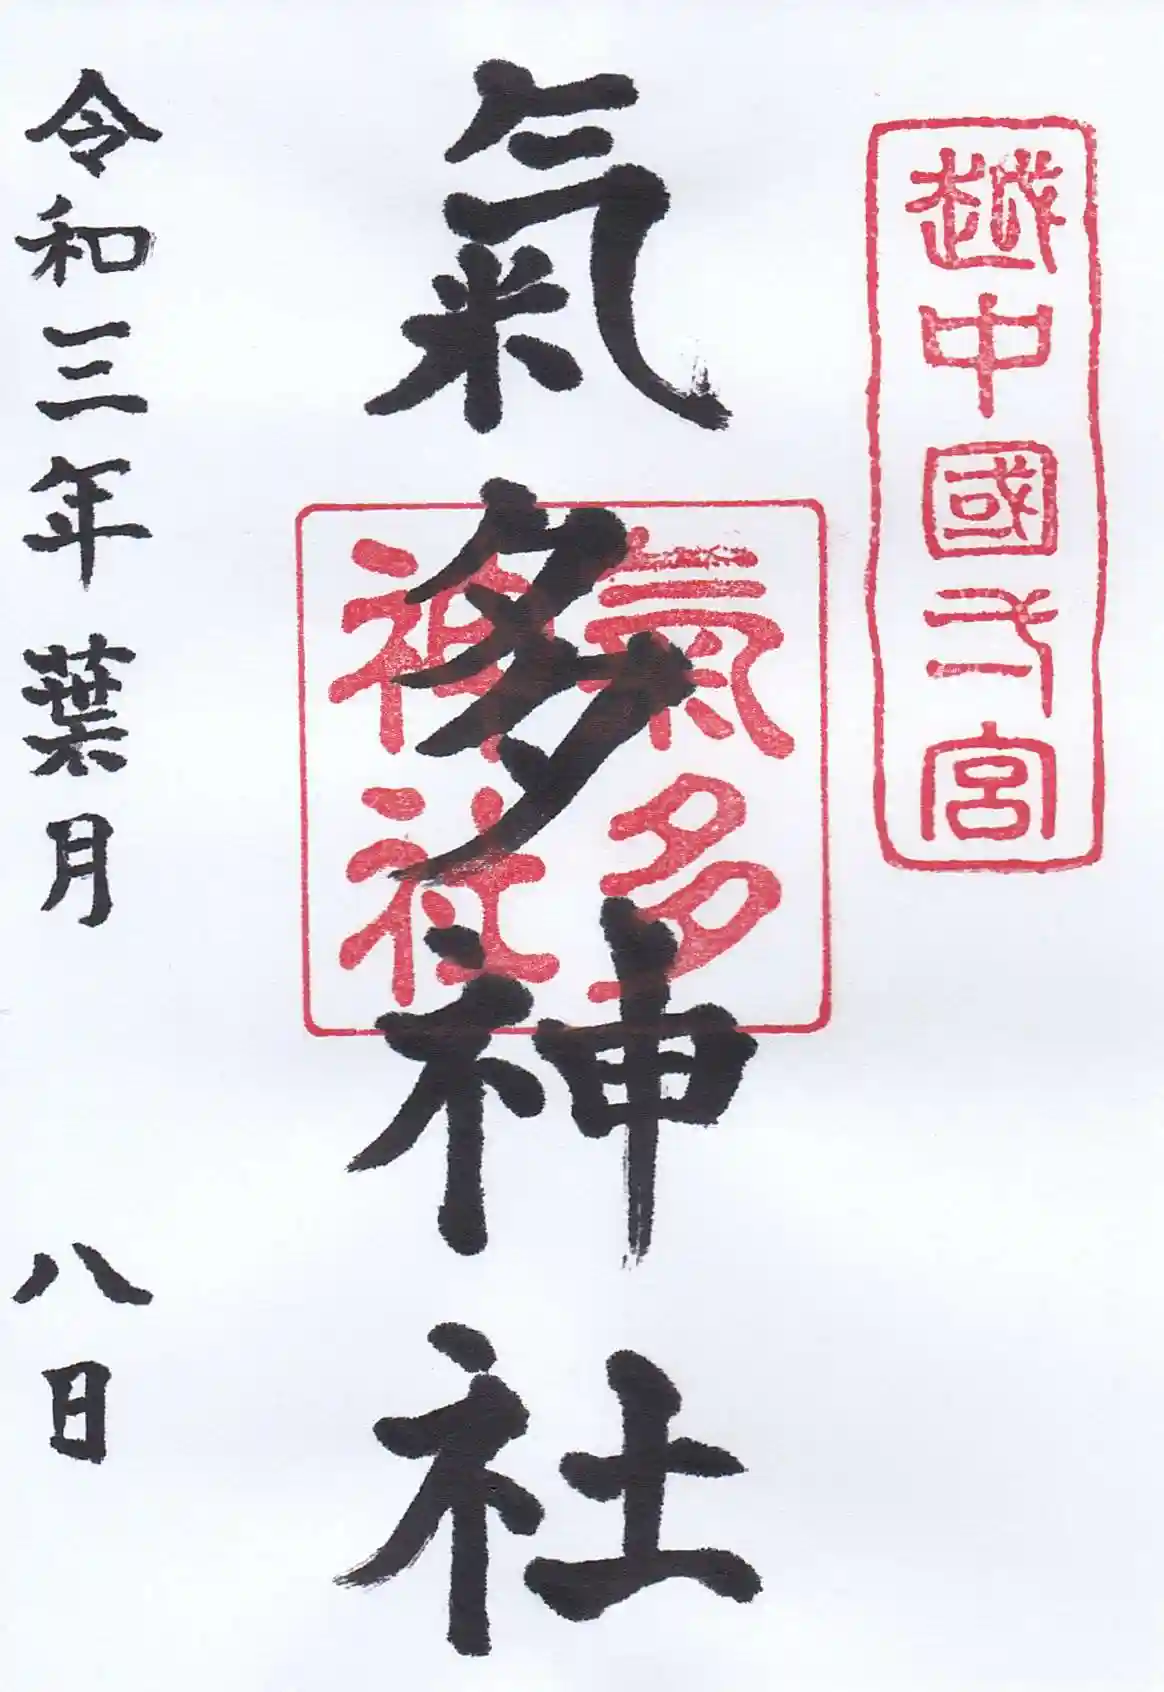 越中國弌宮
氣多神社
氣多
神社
令和三年葉月八日